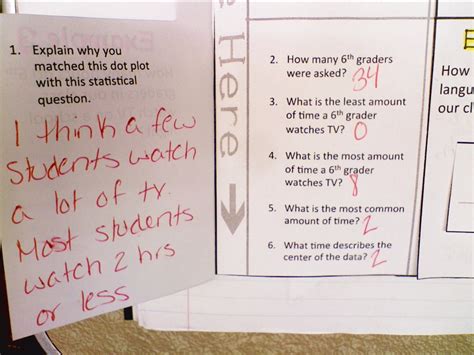 1. Explain why you
matched this dot plot
with this statistical
question.
I think a few
students watch
a lot of tv.
Most students
watch 2 hrs
or less
Here
2. How many 6th graders
were asked? 34
3. What is the least amount
of time a 6th grader
watches TV? 0
4. What is the most amount
of time a 6th grader
watches TV? 8
5. What is the most common
amount of time? 2
6. What time describes the
center of the data? 2
How
langu
our c